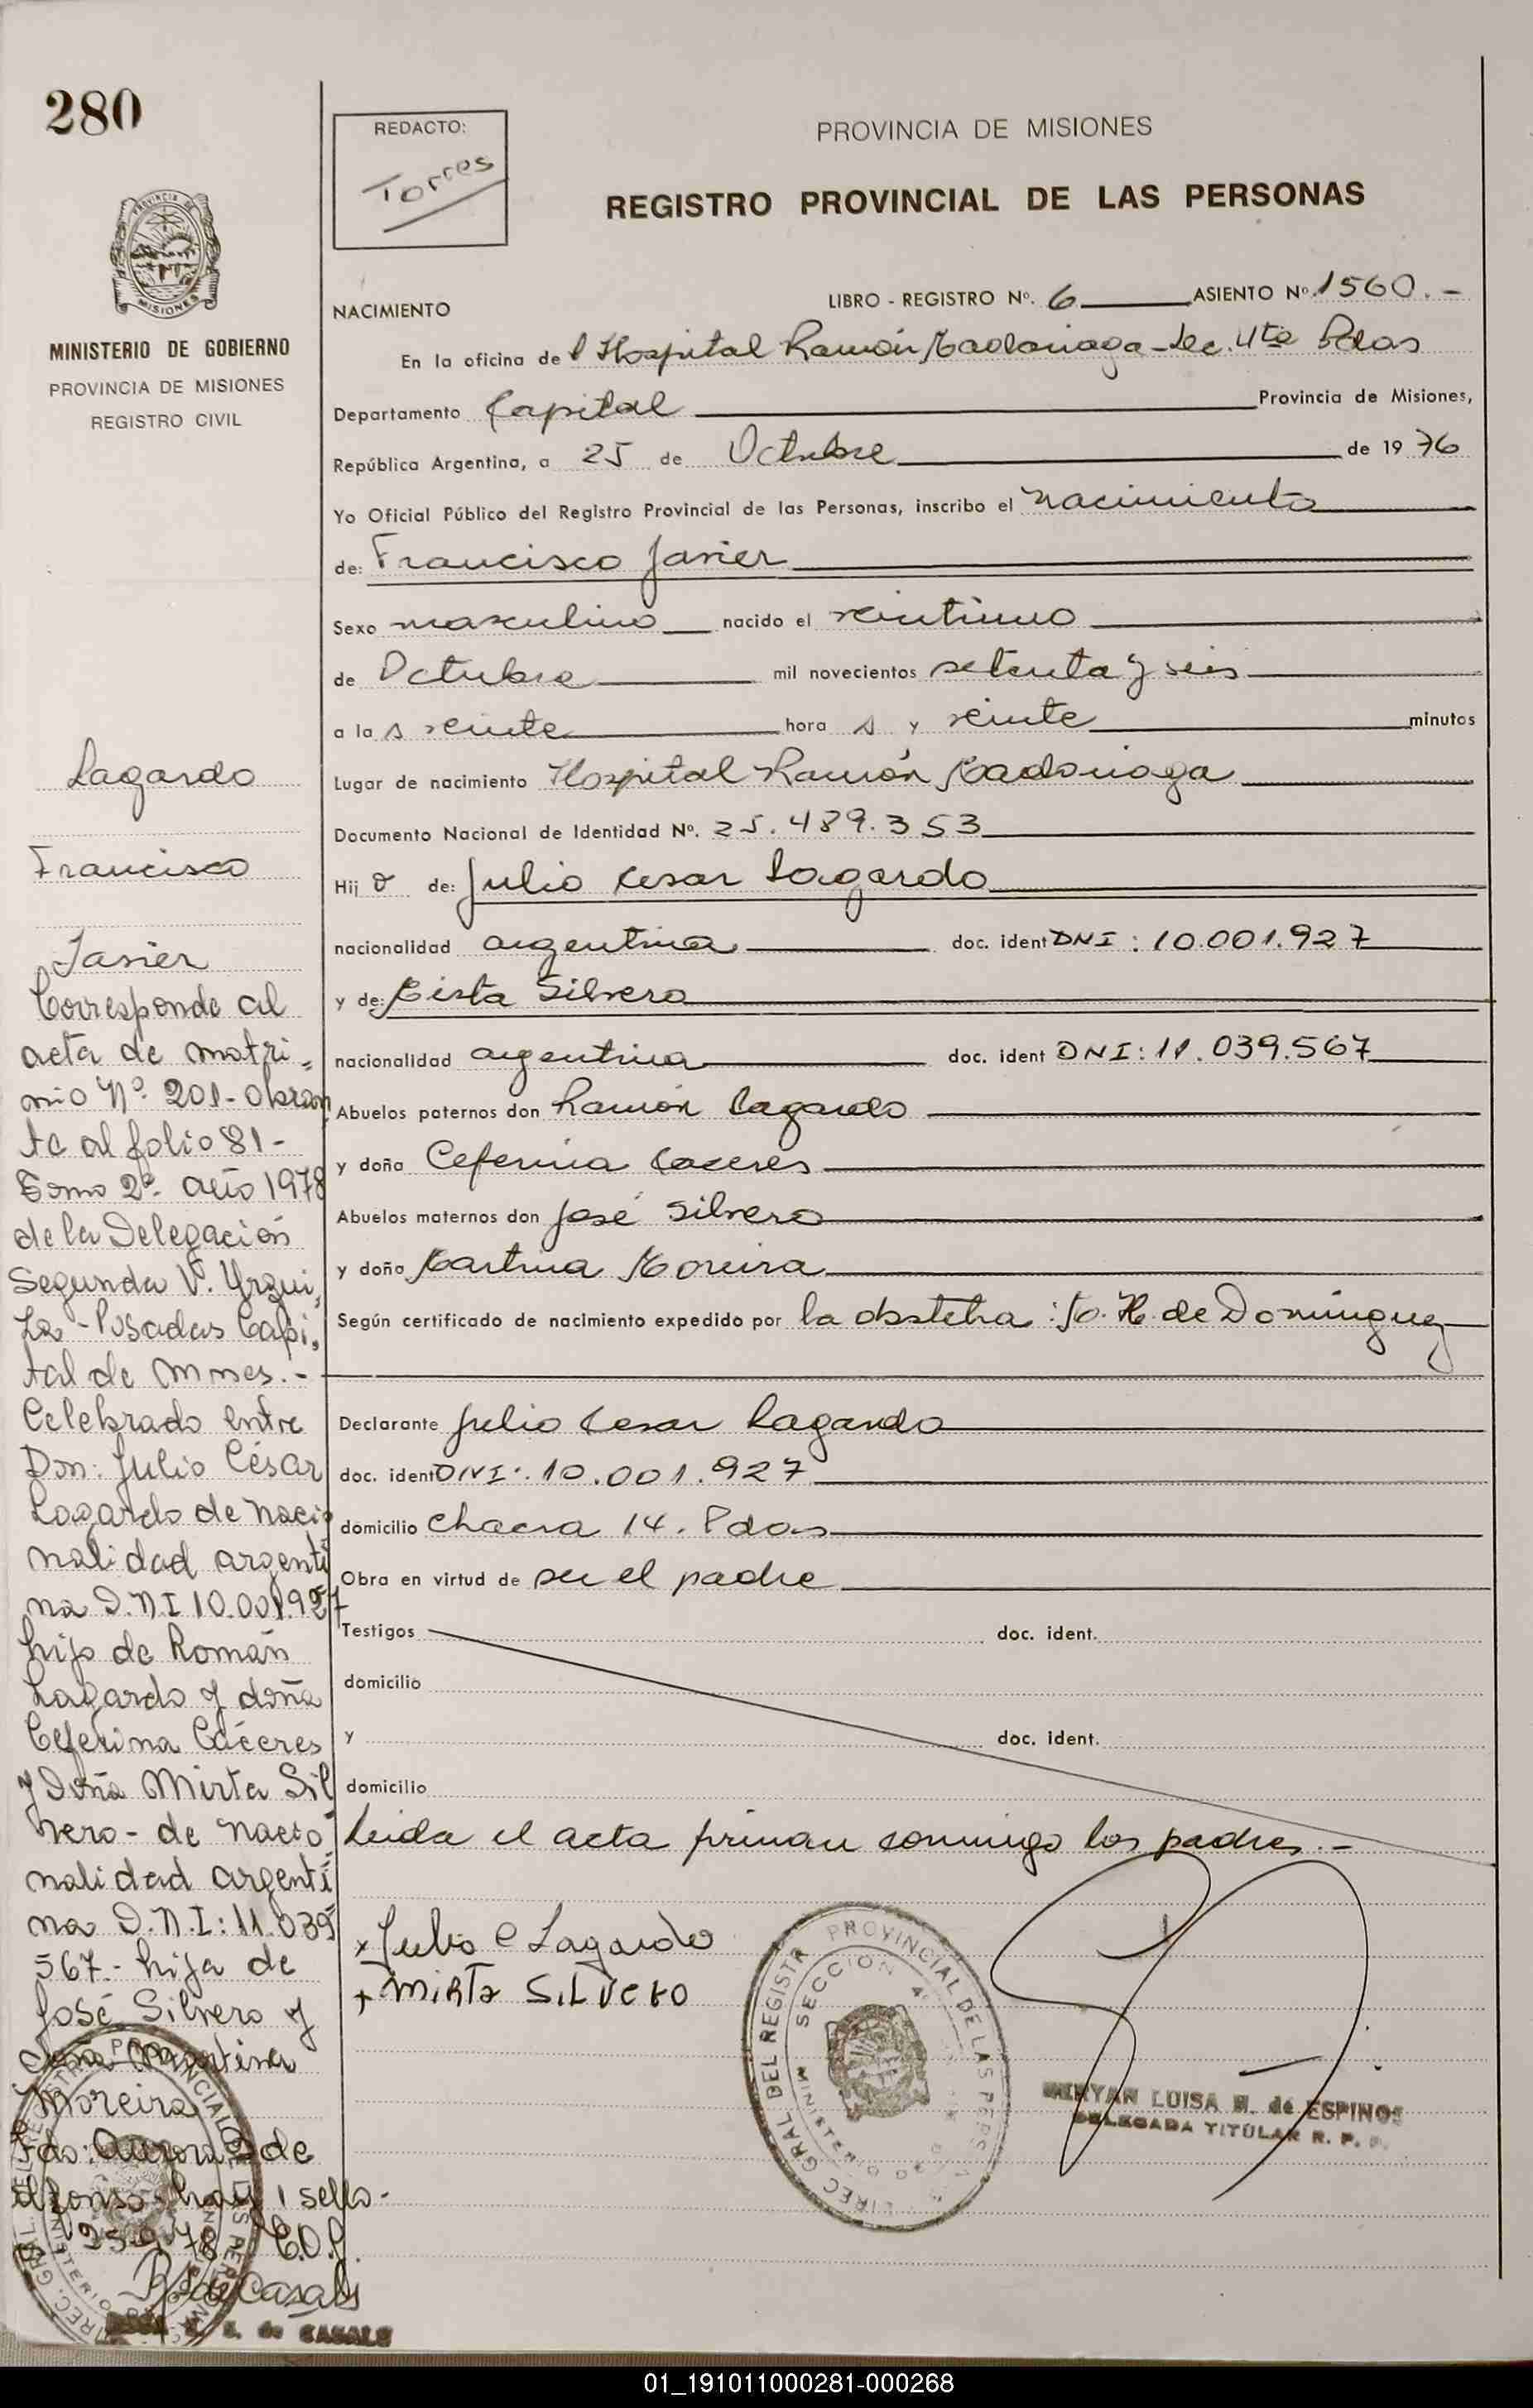 280
REDACTO:
Torres
PROVINCIA DE MISIONES
REGISTRO PROVINCIAL DE LAS PERSONAS
MINISTERIO DE GOBIERNO
PROVINCIA DE MISIONES
REGISTRO CIVIL
NACIMIENTO
LIBRO - REGISTRO Nº. 6 ASIENTO Nº 1560.-
En la oficina del Hospital Ramón Madariaga - Sec. 4ta Pdas
Departamento Capital Provincia de Misiones,
República Argentina, a 25 de Octubre de 1976
Yo Oficial Público del Registro Provincial de las Personas, inscribo el nacimiento
de: Francisco Javier
Sexo masculino nacido el veintiuno
de Octubre mil novecientos setenta y seis
a las veinte horas y veinte minutos
Lugar de nacimiento Hospital Ramón Madariaga
Documento Nacional de Identidad Nº. 25.489.353
Hijo de: Julio Cesar Lagardo
nacionalidad argentina doc. ident DNI: 10.001.927
y de: Mirta Silvero
nacionalidad argentina doc. ident DNI: 11.039.567
Abuelos paternos don Ramón Lagardo
y doña Ceferina Caceres
Abuelos maternos don José Silvero
y doña Martina Moreira
Según certificado de nacimiento expedido por la obstetra: M. H. de Domínguez
Declarante Julio Cesar Lagardo
doc. ident DNI: 10.001.927
domicilio Chacra 14. Pdas
Obra en virtud de ser el padre
Testigos doc. ident.
domicilio
y doc. ident.
domicilio
Leida el acta firman conmigo los padres.-
x Julio C Lagardo
+ MIRTA SILVERO
DIREC. GRAL DEL REGISTR PROVINCIAL DE LAS PERS
SECCION 4
MINISTERIO
MIRYAN LUISA M. de ESPINOS
DELEGADA TITULAR R. P. P.
Lagardo
Francisco
Javier
Corresponde al
acta de matri=
mio Nº 201 - obran
te al folio 81 -
Tomo 2º- año 1978
de la Delegación
Segunda V. Urqui
za - Posadas Capi=
tal de Mnes.-
Celebrado entre
Don: Julio César
Lagardo de nacio
nalidad argenti
na D.N.I 10.001.927
hijo de Román
Lagardo y doña
Ceferina Cáceres
y Doña Mirta Sil
vero - de nacio
nalidad argenti
na D.N.I: 11.039
567.- hija de
José Silvero y
doña Martina
Moreira
fdo: Aurora de
Alfonso hay 1 sello-
25-9-78
de Casals
de CASALS
01_191011000281-000268